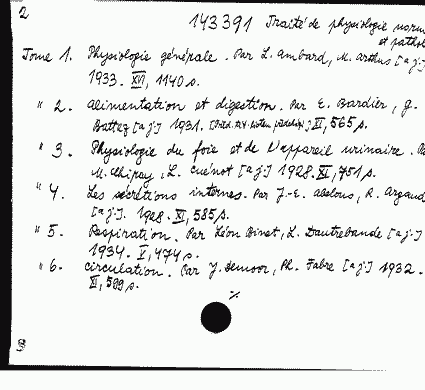 2
143391 Traité de physiologie norm
et pathol
Tome 1. Physiologie générale. Par L. Ambard, M. Arthus [a.j.]
1933. XVI, 1140 s.
" 2. Alimentation et digestion. Par E. Bardier, G.
Battez [a.j.] 1931. XI, 565 s.
" 3. Physiologie du foie et de l'appareil urinaire. Pa
M. Chiray, L. Cuénot [a.j.] 1928. XI, 751 s.
" 4. Les sécrétions internes. Par J.-E. Abelous, R. Argaud
[a.j.]. 1928. XI, 585 s.
" 5. Respiration. Par Léon Binet, L. Dautrebande [a.j.]
1934. V, 474 s.
" 6. Circulation. Par J. Demoor, Ph. Fabre [a.j.] 1932.
XI, 599 s.
%